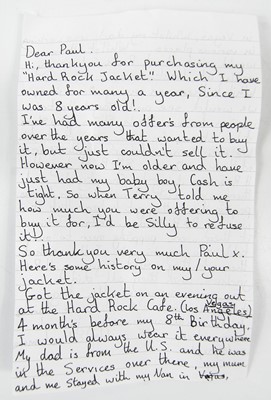 Dear Paul.
Hi, thankyou for purchasing my
"Hard Rock Jacket". Which I have
owned for many a year, Since I
was 8 years old!.
I've had many offer's from people
over the years that wanted to buy
it, but just couldn't sell it.
However now I'm older and have
just had my baby boy, Cash is
tight. So when Terry told me
how much you were offering to
buy it for, I'd be Silly to refuse
it!.
So thankyou very much Paul x.
Here's some history on my/your
jacket.
Got the jacket on an evening out
at the Hard Rock Cafe. (Los Vegas Angeles)
4 month's before my 8th Birthday.
I would always wear it everywhere
My dad is from the U.S. and he was
in the Services over there, my mum
and me Stayed with my Nan in Vegas.